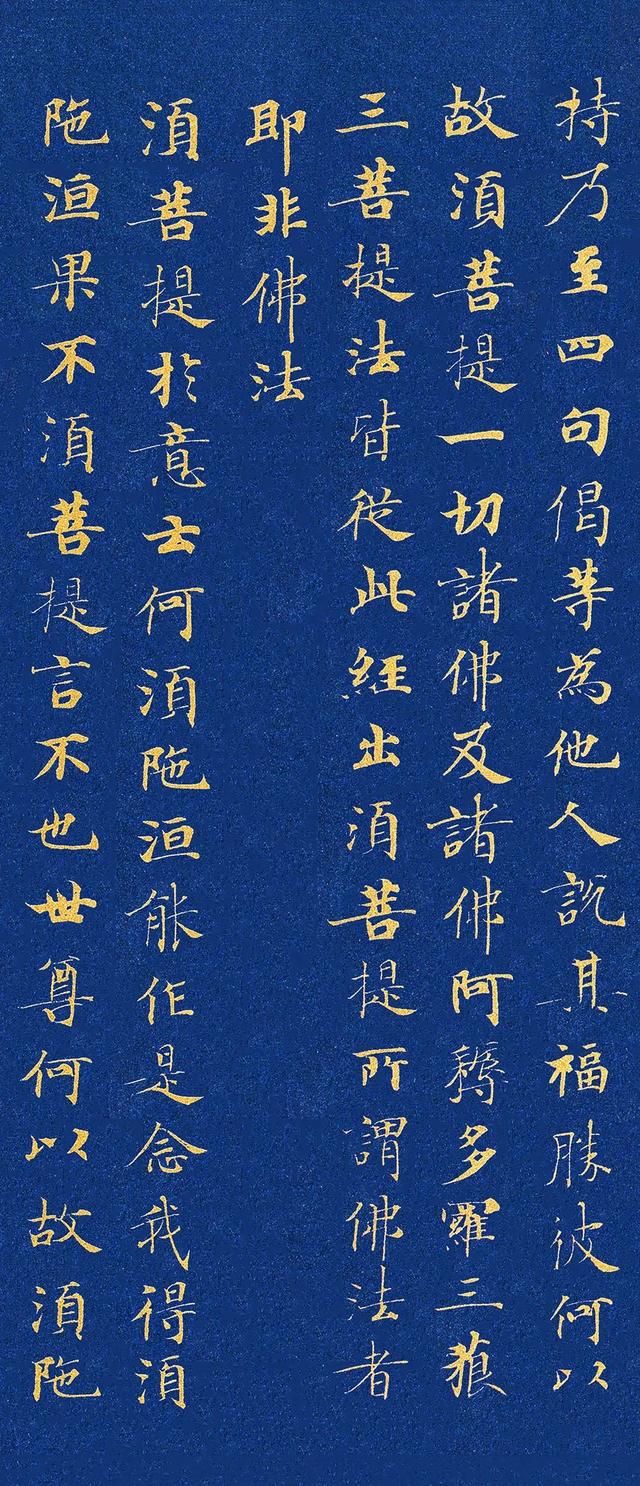 持乃至四句偈等為他人說其福勝彼何以
故須菩提一切諸佛及諸佛阿耨多羅三藐
三菩提法皆從此經出須菩提所謂佛法者
即非佛法
須菩提於意云何須陁洹能作是念我得須
陁洹果不須菩提言不也世尊何以故須陁